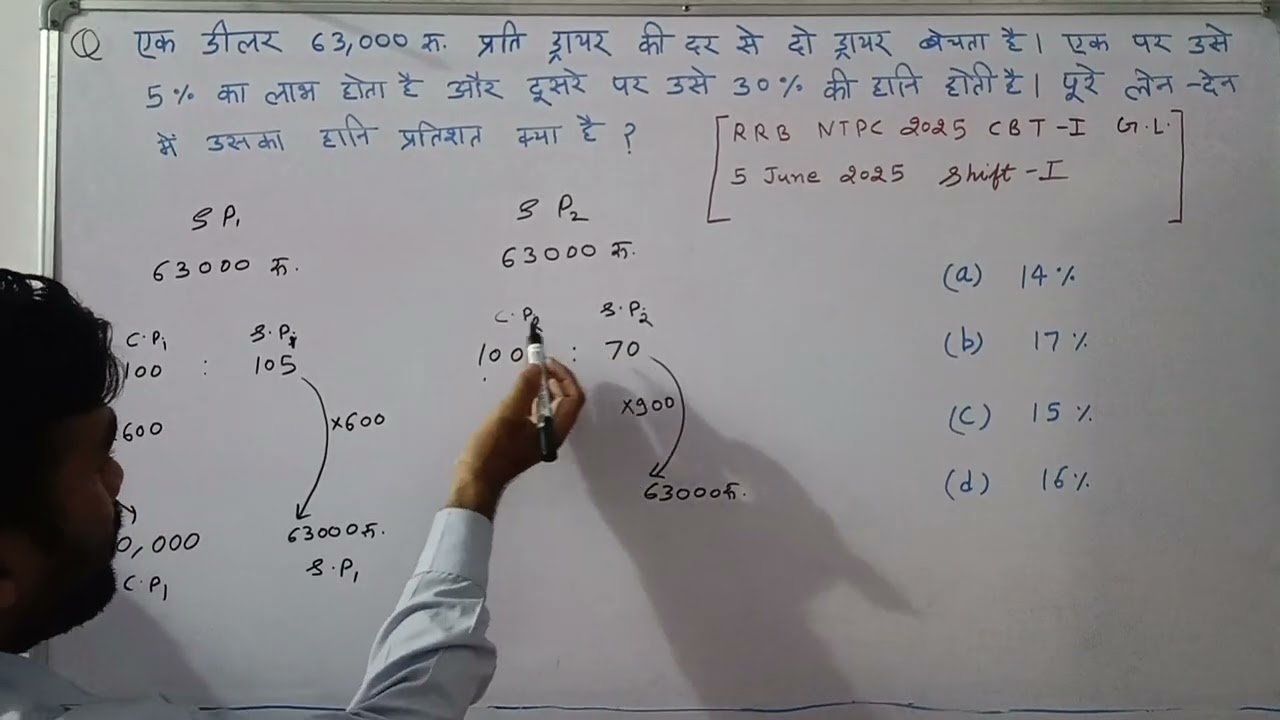 Q एक डीलर 63,000 रु. प्रति ड्रायर की दर से दो ड्रायर बेचता है। एक पर उसे
5% का लाभ होता है और दूसरे पर उसे 30% की हानि होती है। पूरे लेन-देन
में उसका हानि प्रतिशत क्या है ?
[RRB NTPC 2025 CBT-I G.L.
5 June 2025 Shift-I]
S P₁
63000 रु.
S P₂
63000 रु.
C.P₁ S.P₁
100 : 105
600
×600
0,000
C.P₁
63000रु.
S.P₁
C.P₂ S.P₂
100 : 70
×900
63000रु.
(a) 14%
(b) 17%
(c) 15%
(d) 16%